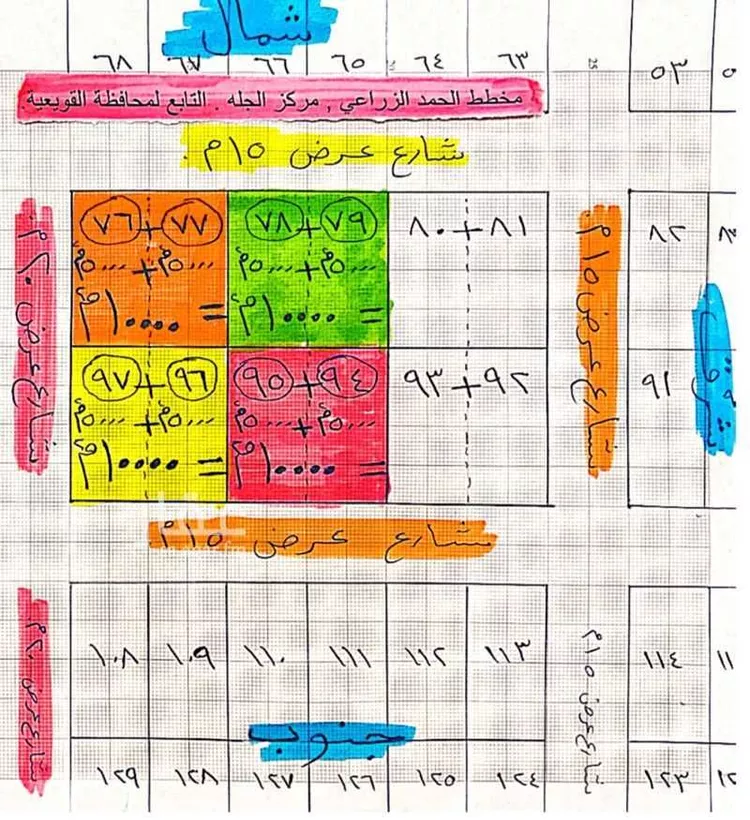 شمال
٦٨ ٦٧ ٦٦ ٦٥ ٦٤ ٦٣ ٥٣
مخطط الحمد الزراعي , مركز الجله . التابع لمحافظة القويعية
شارع عرض ١٥م
شارع عرض ٢٠م
٧٦+٧٧
٥٠٠٠م+٥٠٠٠م
=١٠٠٠٠م
٧٨+٧٩
٥٠٠٠م+٥٠٠٠م
=١٠٠٠٠م
٨٠+٨١
شارع عرض ١٥م
٨٢
شرق
٩٧+٩٦
٥٠٠٠م+٥٠٠٠م
=١٠٠٠٠م
٩٥+٩٤
٥٠٠٠م+٥٠٠٠م
=١٠٠٠٠م
٩٣+٩٢
٩١
شارع عرض ١٥م
شارع عرض ٢٠م
١٠٨ ١٠٩ ١١٠ ١١١ ١١٢ ١١٣
شارع عرض ١٥م
١١٤
جنوب
١٢٩ ١٢٨ ١٢٧ ١٢٦ ١٢٥ ١٢٤ ١٢٣